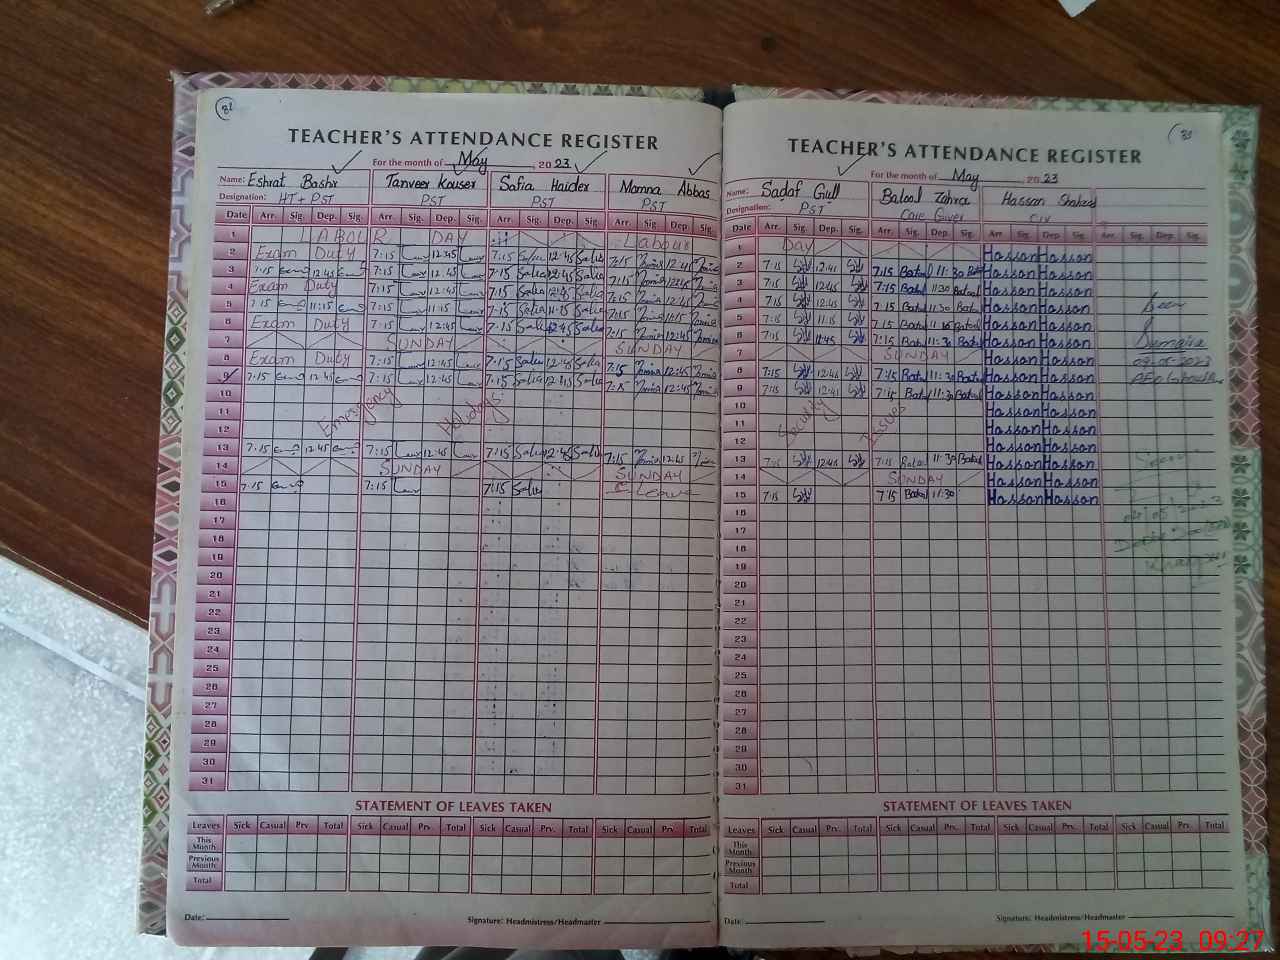 TEACHER'S ATTENDANCE REGISTER
For the month of May, 2023
Name: Eshrat Bashir Tanveer Kouser Safia Haider Momna Abbas
Designation: HT + PST PST PST PST
Date Arr. Sig. Dep. Sig. Arr. Sig. Dep. Sig. Arr. Sig. Dep. Sig. Arr. Sig. Dep. Sig.
1 LABOUR DAY Labour
2 Exam Duty 7:15 12:45 7:15 Safia 12:45 Safia 7:15 12:45
3 7:15 12:45 7:15 12:45 7:15 Safia 12:45 Safia 7:15 12:45
4 Exam Duty 7:15 12:45 7:15 Safia 12:45 Safia 7:15 12:45
5 7:15 11:15 7:15 11:15 7:15 Safia 11:15 Safia 7:15 11:15
6 Exam Duty 7:15 12:45 7:15 Safia 12:45 Safia 7:15 12:45
7 SUNDAY SUNDAY
8 Exam Duty 7:15 12:45 7:15 Safia 12:45 Safia 7:15 12:45
9 7:15 12:45 7:15 12:45 7:15 Safia 12:45 Safia 7:15 12:45
10 Emergency Holidays
11
12
13 7:15 12:45 7:15 12:45 7:15 Safia 12:45 Safia 7:15 12:45
14 SUNDAY SUNDAY
15 7:15 7:15 7:15 Safia Leave
16
17
18
19
20
21
22
23
24
25
26
27
28
29
30
31
STATEMENT OF LEAVES TAKEN
Leaves Sick Casual Prv. Total Sick Casual Prv. Total Sick Casual Prv. Total Sick Casual Prv. Total
This Month
Previous Month
Total
Date: Signature: Headmistress/Headmaster
TEACHER'S ATTENDANCE REGISTER
For the month of May, 2023
Name: Sadaf Gull Batool Zahra Hassan Shahzad
Designation: PST Care Giver CIV
Date Arr. Sig. Dep. Sig. Arr. Sig. Dep. Sig. Arr. Sig. Dep. Sig. Arr. Sig. Dep. Sig.
1 DAY
2 7:15 12:45 7:15 Batool 11:30 Hassan Hassan
3 7:15 12:45 7:15 Batool 11:30 Batool Hassan Hassan
4 7:15 12:45 7:15 Batool 11:30 Batool Hassan Hassan Seen
5 7:15 11:15 7:15 Batool 11:15 Batool Hassan Hassan
6 7:15 11:45 7:15 Batool 11:30 Batool Hassan Hassan Sumaira
7 SUNDAY Hassan Hassan
8 7:15 12:45 7:15 Batool 11:30 Batool Hassan Hassan
9 7:15 12:45 7:15 Batool 11:30 Batool Hassan Hassan
10 Security Issues Hassan Hassan
11 Hassan Hassan
12 Hassan Hassan
13 7:15 12:45 7:15 Batool 11:30 Batool Hassan Hassan
14 SUNDAY Hassan Hassan
15 7:15 7:15 Batool 11:30 Hassan Hassan
16
17
18
19
20
21
22
23
24
25
26
27
28
29
30
31
STATEMENT OF LEAVES TAKEN
Leaves Sick Casual Prv. Total Sick Casual Prv. Total Sick Casual Prv. Total Sick Casual Prv. Total
This Month
Previous Month
Total
Date: Signature: Headmistress/Headmaster
15-05-23 09:27